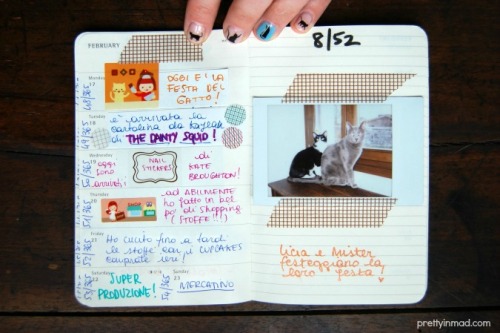 FEBRUARY
8/52
Monday
17
OGGI È LA
FESTA DEL
GATTO!
48/365
Tuesday
18
è arrivata la
cartolina da Kaylah
di THE DAINTY SQUID!
49/365
Wednesday
19
OGGI
SONO
arrivati
NAIL
STICKERS
di
KATE
BROUGHTON!
50/365
Thursday
20
ad ABILMENTE
ho fatto un bel
po' di shopping
(STOFFE!!!)
51/365
Friday
21
Ho cucito fino a tardi
le stoffe con i CUPCAKES
comprate ieri!
52/365
Saturday
22
SUPER
PRODUZIONE!
53/365
Sunday
23
MERCATINO
54/365
Licia e Mister
festeggiano la
loro festa!
prettyinmad.com